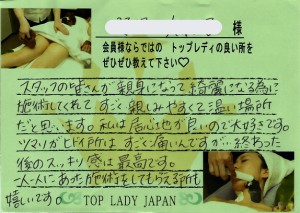 様
会員様ならではの トップレディの良い所を
ぜひぜひ教えて下さい♡
スタッフの皆さんが親身になって綺麗になる為に
施術してくれて すごく親しみやすくて温い場所
だと思います。私は居心地が良いので大好きです。
ツマリがヒドイ所はすごく痛いですが…終わった
後のスッキリ感は最高です。
一人一人にあった施術をしてもらえる所も
嬉しいです。
TOP LADY JAPAN